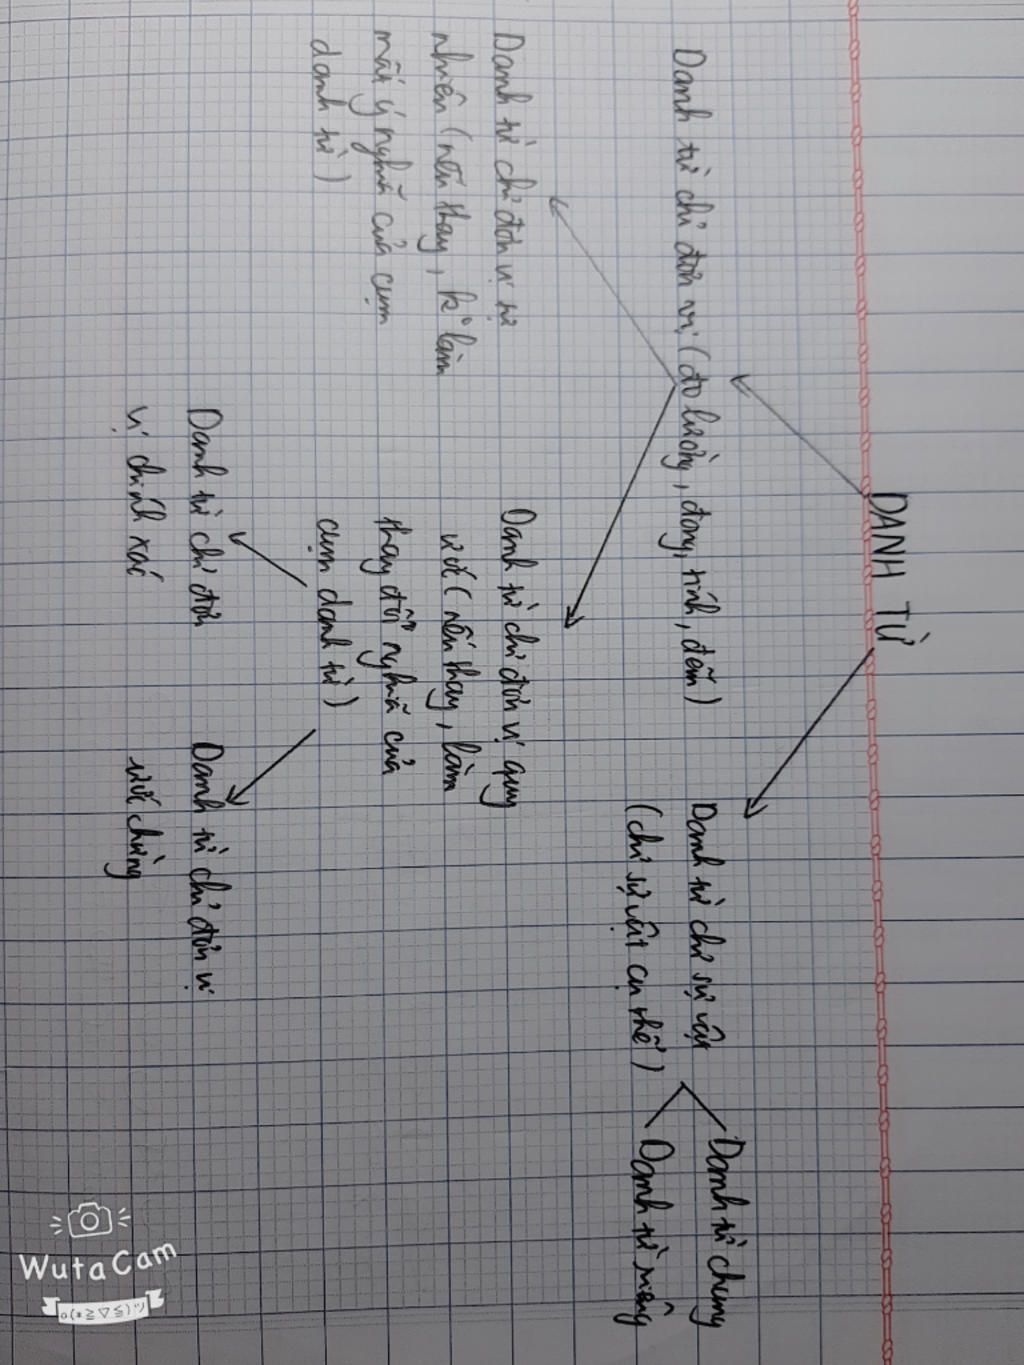 DANH TỪ
Danh từ chỉ đơn vị (đo lường, đong, tính, đếm)
Danh từ chỉ sự vật
(chỉ sự vật cụ thể)
Danh từ chung
Danh từ riêng
Danh từ chỉ đơn vị tự
nhiên (nếu thay, k làm
mất ý nghĩa của cụm
danh từ)
Danh từ chỉ đơn vị quy
ước (nếu thay, làm
thay đổi nghĩa của
cụm danh từ)
Danh từ chỉ đơn
vị chính xác
Danh từ chỉ đơn vị
ước chừng
WutaCam
o(*≧▽≦)ツ